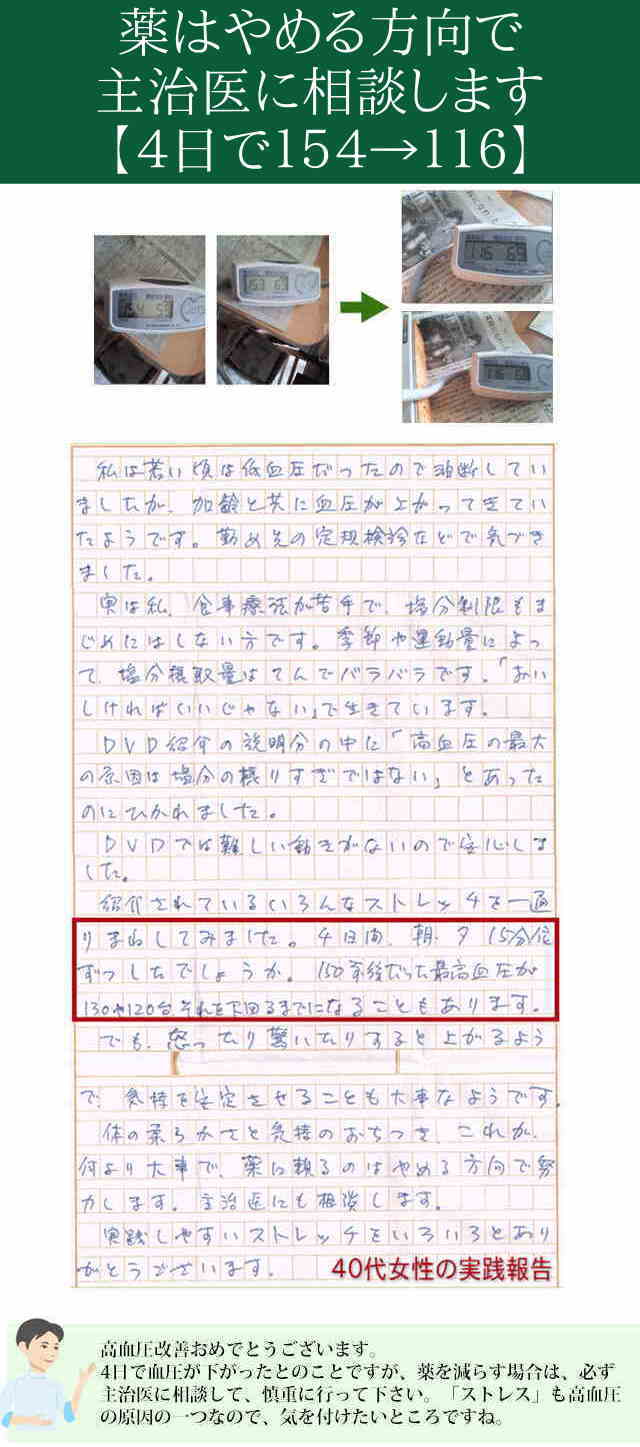 薬はやめる方向で
主治医に相談します
【４日で154→116】
154 59
153 63
116 69
116 69
私は若い頃は低血圧だったので油断してい
ましたが、加齢と共に血圧が上がってきてい
たようです。勤め先の定期検診などで気づき
ました。
実は私、食事療法が苦手で、塩分制限もま
じめにはしない方です。季節や運動量によっ
て、塩分摂取量はてんでバラバラです。「おい
しければいいじゃない」で生きています。
DVD紹介の説明分の中に「高血圧の最大
の原因は塩分の摂りすぎではない」とあった
のにひかれました。
DVDでは難しい動きがないので安心しま
した。
紹介されているいろんなストレッチを一通
りまねしてみました。4日間、朝・夕15分位
ずつしたでしょうか。150前後だった最高血圧が
130や120台、それを下回るまでになることもあります。
でも、怒ったり驚いたりすると上がるよう
で、気持を安定させることも大事なようです。
体の柔らかさと気持のおちつき、これが、
何より大事で、薬に頼るのはやめる方向で努
力します。主治医にも相談します。
実践しやすいストレッチをいろいろとあり
がとうございます。
40代女性の実践報告
高血圧改善おめでとうございます。
4日で血圧が下がったとのことですが、薬を減らす場合は、必ず
主治医に相談して、慎重に行って下さい。「ストレス」も高血圧
の原因の一つなので、気を付けたいところですね。